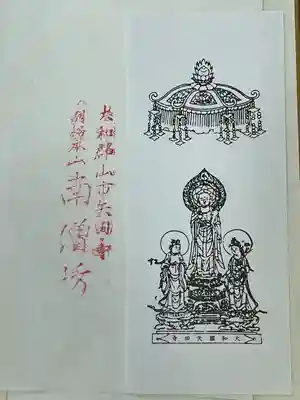 大和郡山市矢田寺
別格本山南僧坊
大和國矢田寺